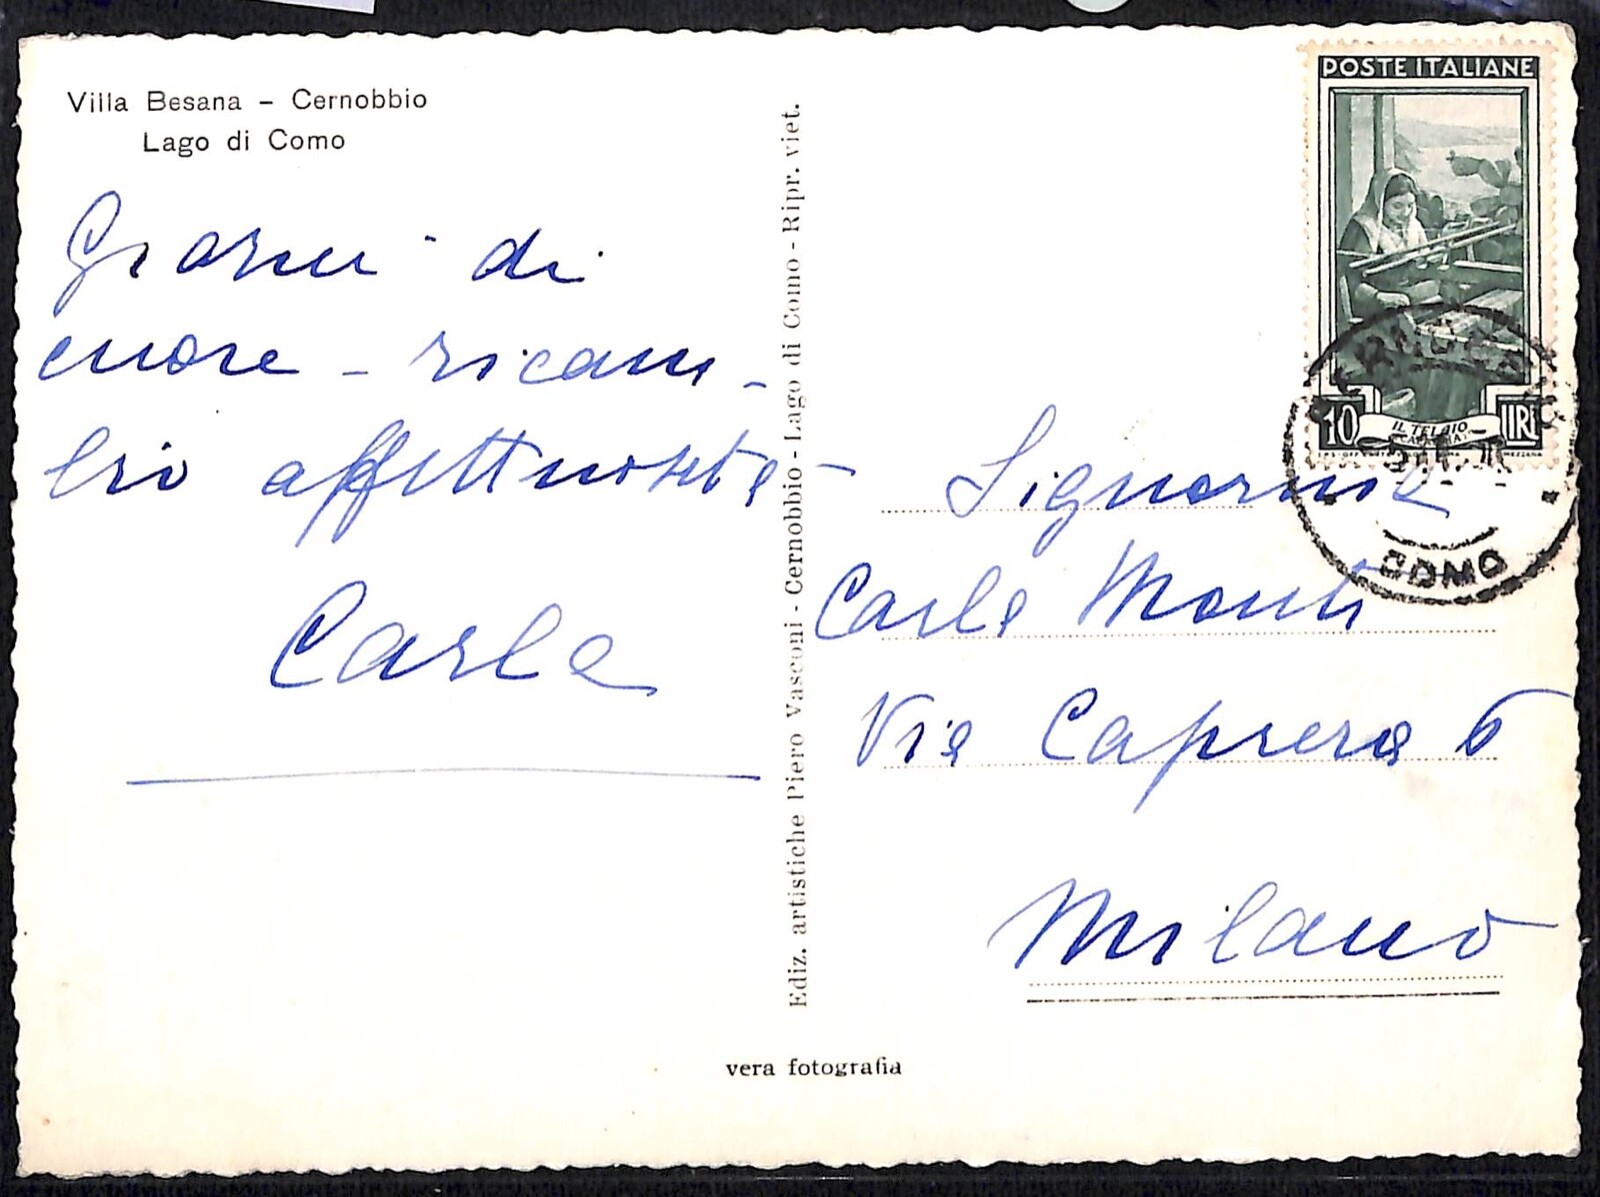 Villa Besana - Cernobbio
Lago di Como
Grazie di
cuore - ricam-
bio affettuosità -
Carla
Ediz. artistiche Piero Vasconi - Cernobbio - Lago di Como - Ripr. viet.
POSTE ITALIANE
10 LIRE
IL TELAIO
COMO
Signorina
Carla Monti
Via Caprera 6
Milano
vera fotografia